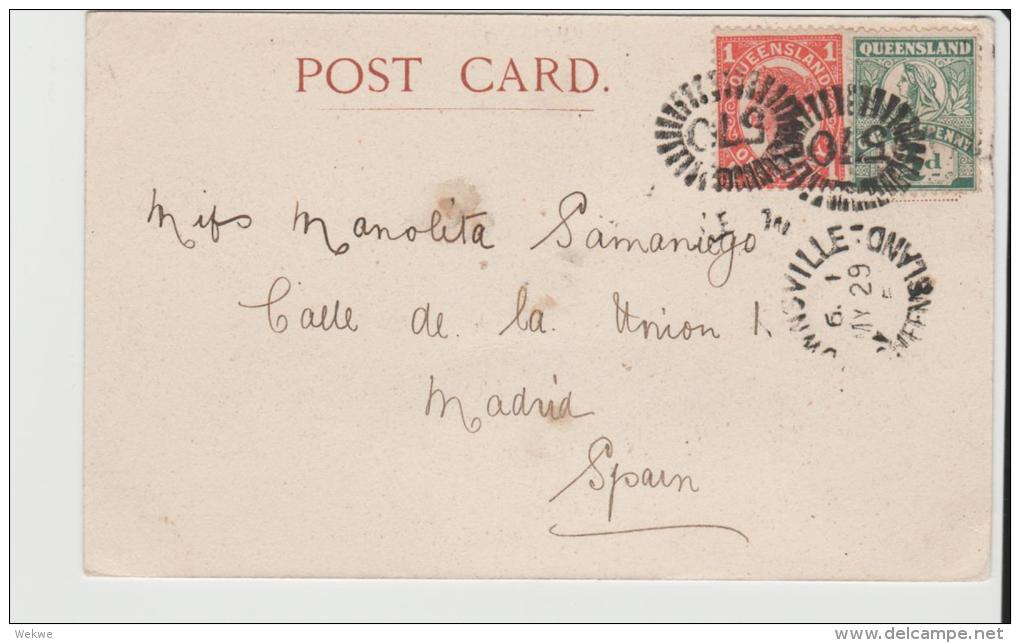 POST CARD.
1 QUEENSLAND 1
QUEENSLAND
PENNY
d
570
570
Miss Manolita Samaniego
Calle de la Union 1
Madrid
Spain
TOWNSVILLE-
QUEENSLAND
6. 1
MY 29
Wekwe
delcampe.net